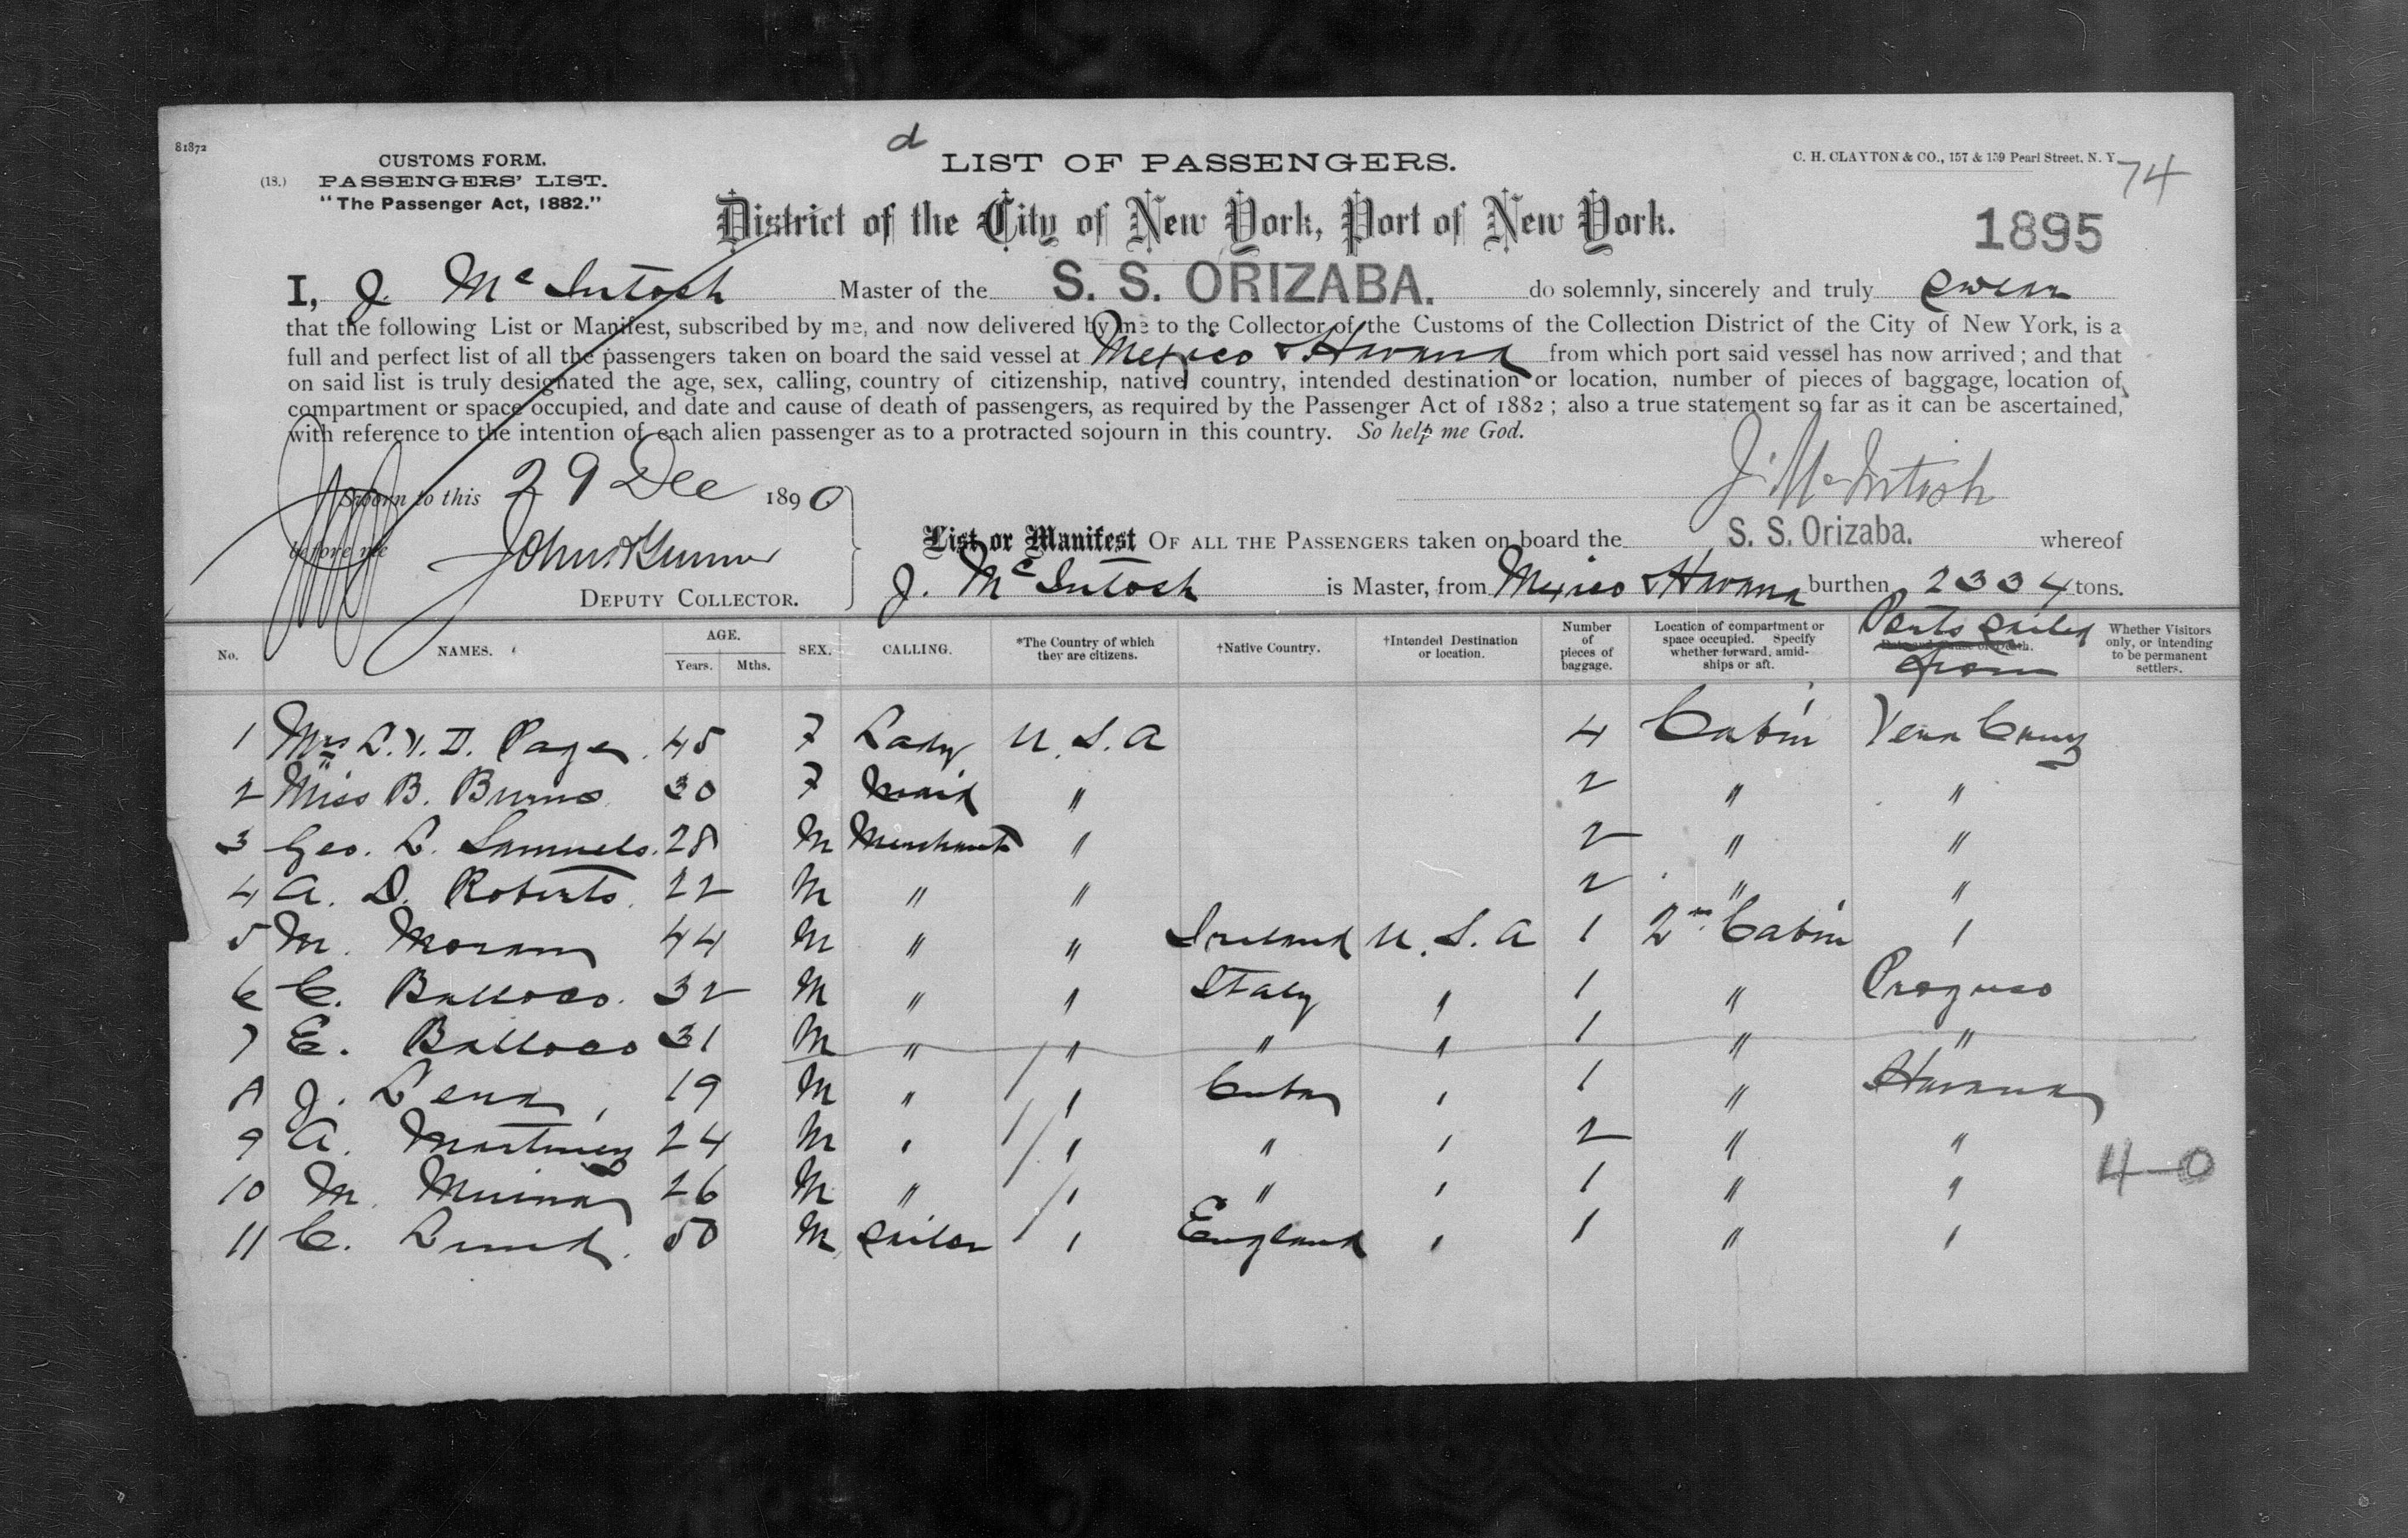 81872
d
CUSTOMS FORM.
(18.) PASSENGERS' LIST.
"The Passenger Act, 1882."
LIST OF PASSENGERS.
C. H. CLAYTON & CO., 157 & 159 Pearl Street, N. Y.
74
District of the City of New York, Port of New York.
1895
I, J. Mc Intosh Master of the S. S. ORIZABA. do solemnly, sincerely and truly swear
that the following List or Manifest, subscribed by me, and now delivered by me to the Collector of the Customs of the Collection District of the City of New York, is a
full and perfect list of all the passengers taken on board the said vessel at Mexico & Havana from which port said vessel has now arrived; and that
on said list is truly designated the age, sex, calling, country of citizenship, native country, intended destination or location, number of pieces of baggage, location of
compartment or space occupied, and date and cause of death of passengers, as required by the Passenger Act of 1882; also a true statement so far as it can be ascertained,
with reference to the intention of each alien passenger as to a protracted sojourn in this country. So help me God.
Sworn to this 29 Dec 1890
J. Mc Intosh
before me John
DEPUTY COLLECTOR.
List or Manifest OF ALL THE PASSENGERS taken on board the S. S. Orizaba. whereof
J. Mc Intosh is Master, from Mexico & Havana burthen 2334 tons.
No. NAMES. AGE. Years. Mths. SEX. CALLING. *The Country of which they are citizens. †Native Country. †Intended Destination or location. Number of pieces of baggage. Location of compartment or space occupied. Specify whether forward, amidships or aft. Date and Cause of Death. Ports sailed from Whether Visitors only, or intending to be permanent settlers.
1 Mrs L. V. D. Page 45 F Lady U. S. A 4 Cabin Vera Cruz
2 Miss B. Burns 30 F Maid " 2 " "
3 Geo. L. Samuels. 28 M Merchant " 2 " "
4 A. D. Roberts. 22 M " " 2 " "
5 M. Moran 44 M " " Ireland U. S. A 1 2nd Cabin "
6 C. Balloco. 32 M " " Italy " 1 " Progreso
7 E. Balloco 31 M " " " " 1 " "
8 J. Lena 19 M " " Cuba " 1 " Havana
9 A. Martinez 24 M " " " " 2 " "
10 M. 26 M " " " " 1 " "
11 C. Lund. 50 M Sailor " England " 1 " "
4-0